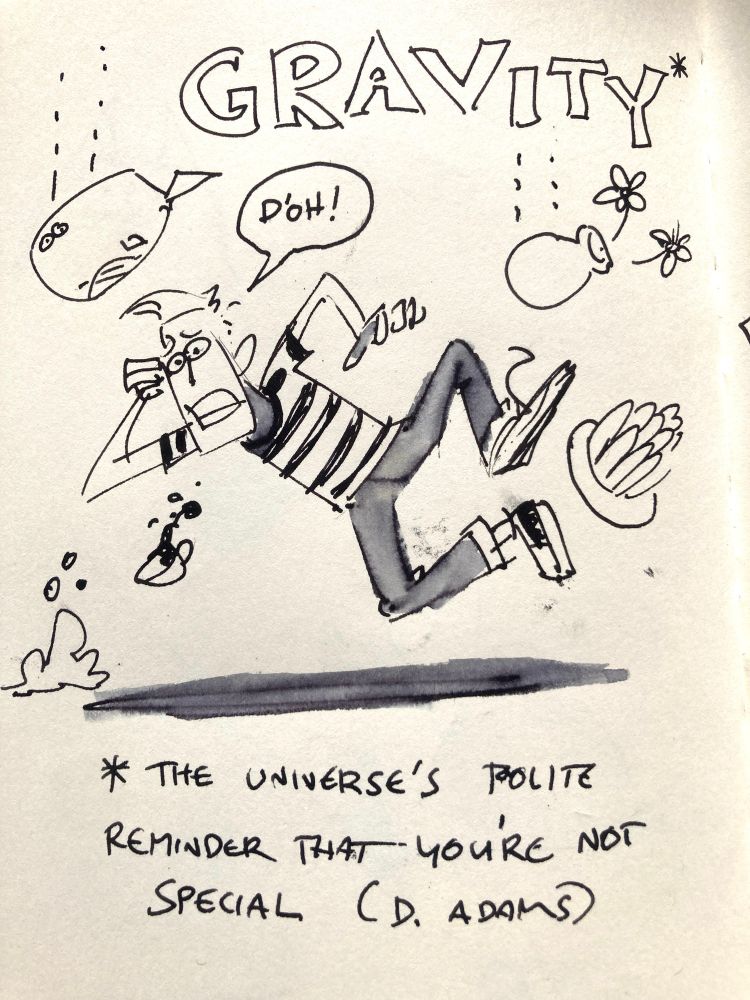 GRAVITY*
D'OH!
* THE UNIVERSE'S POLITE
REMINDER THAT YOU'RE NOT
SPECIAL (D. ADAMS)